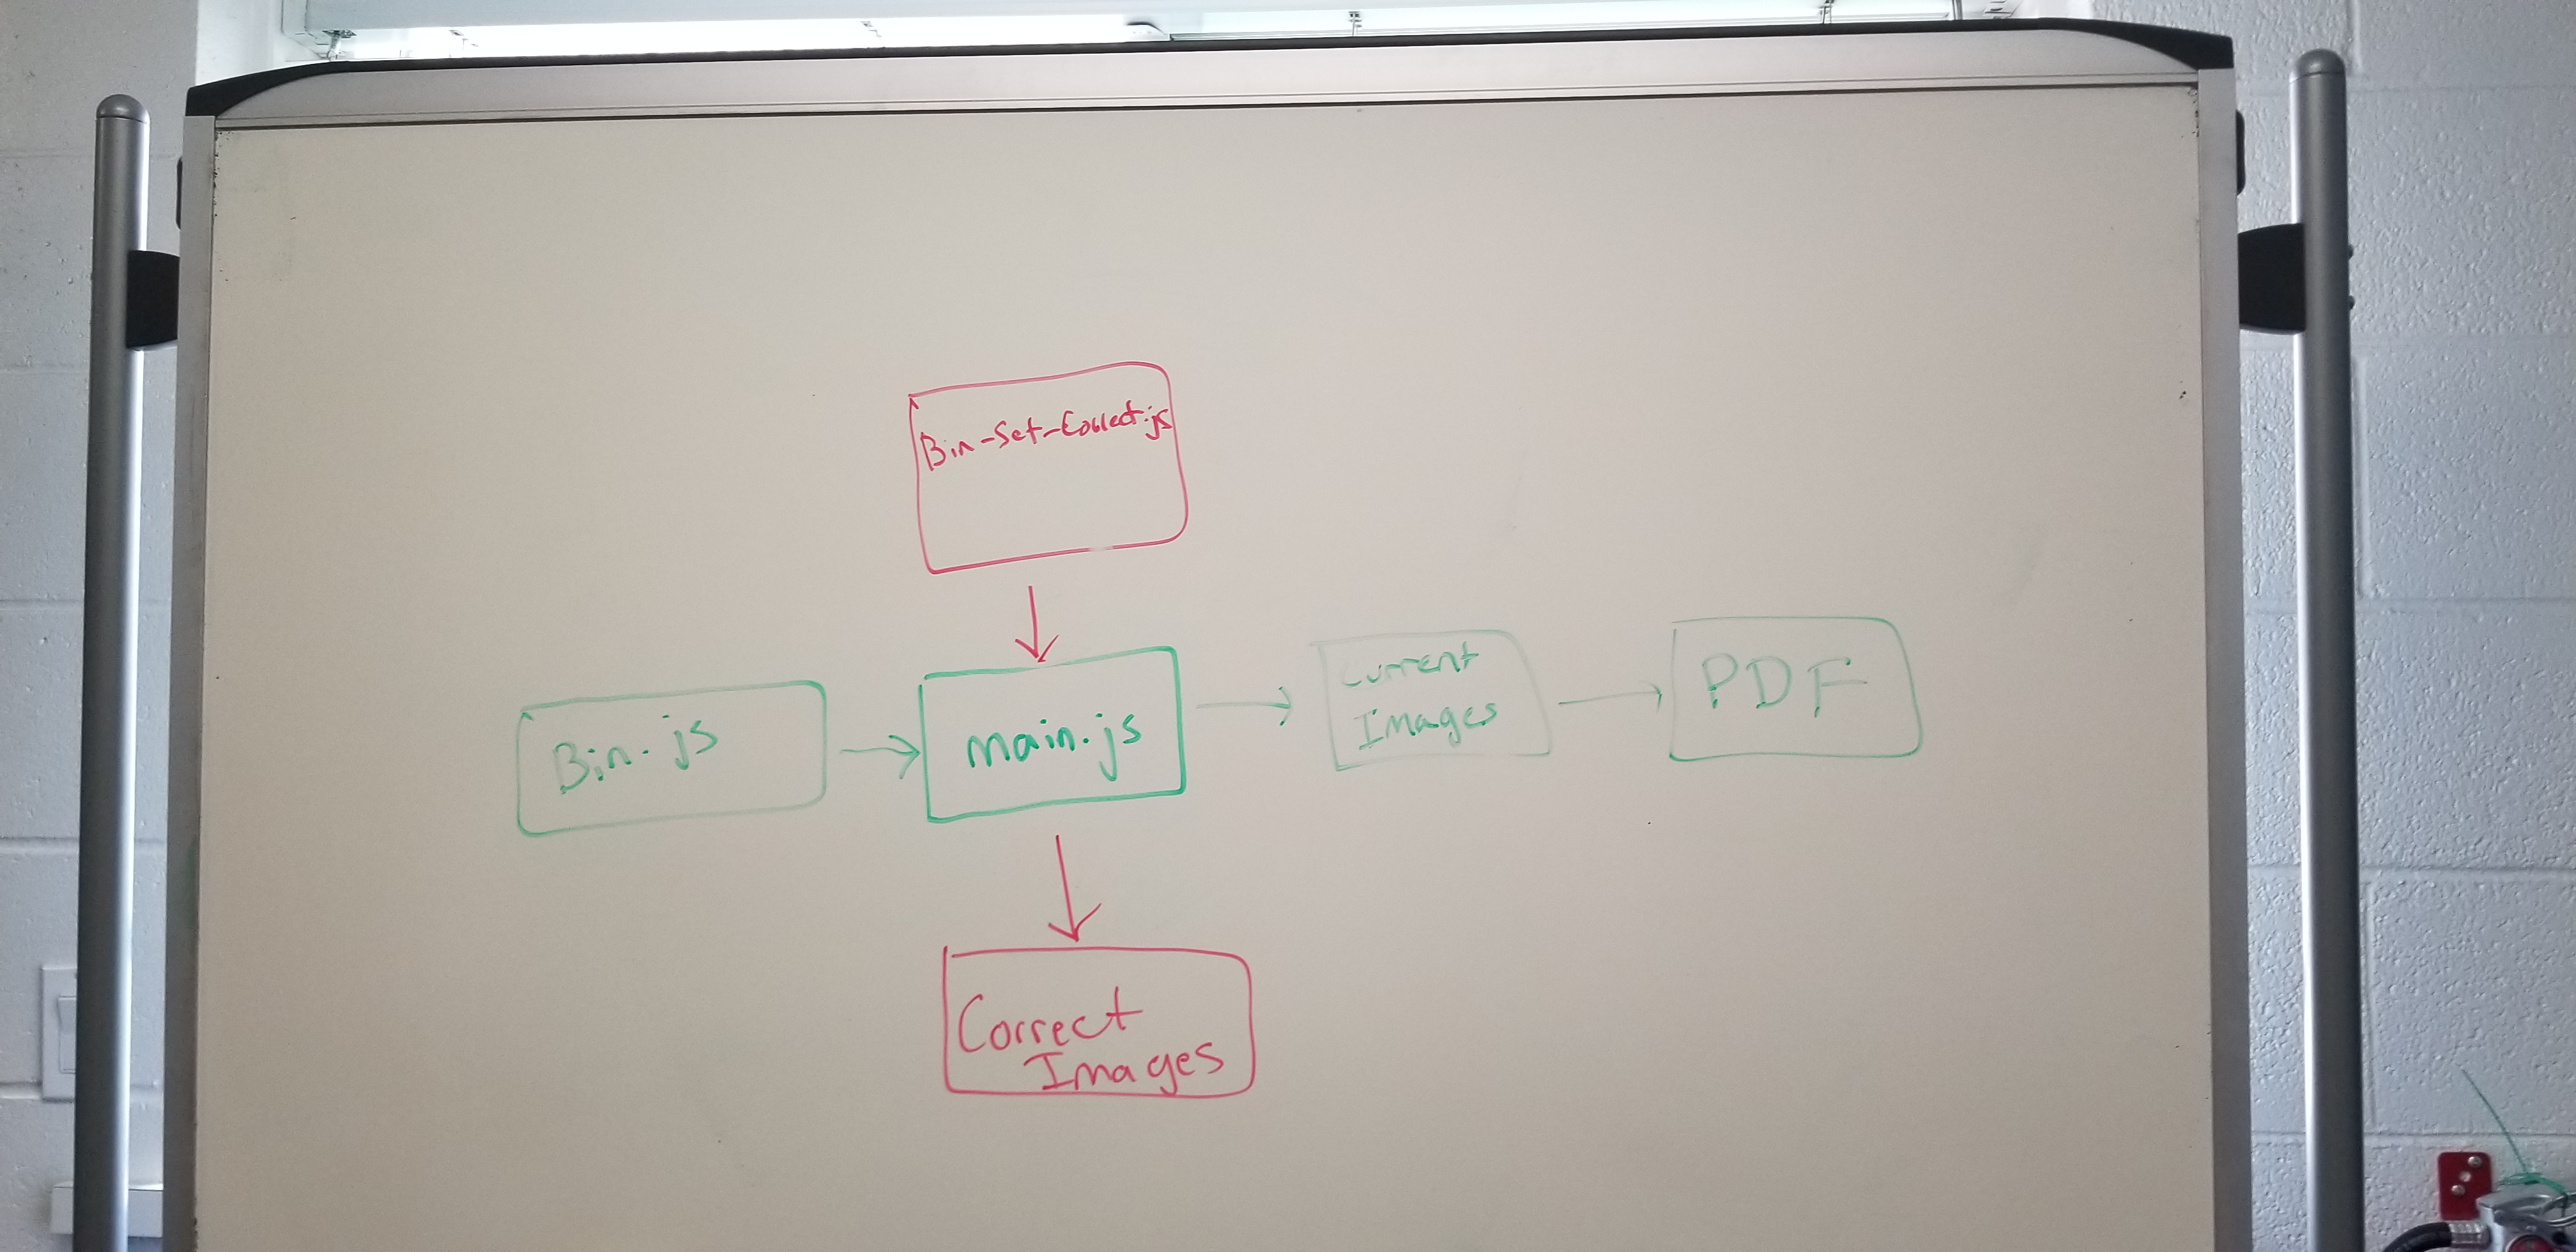 Bin-Set-Correct.js
Bin.js
main.js
Current
Images
PDF
Correct
Images